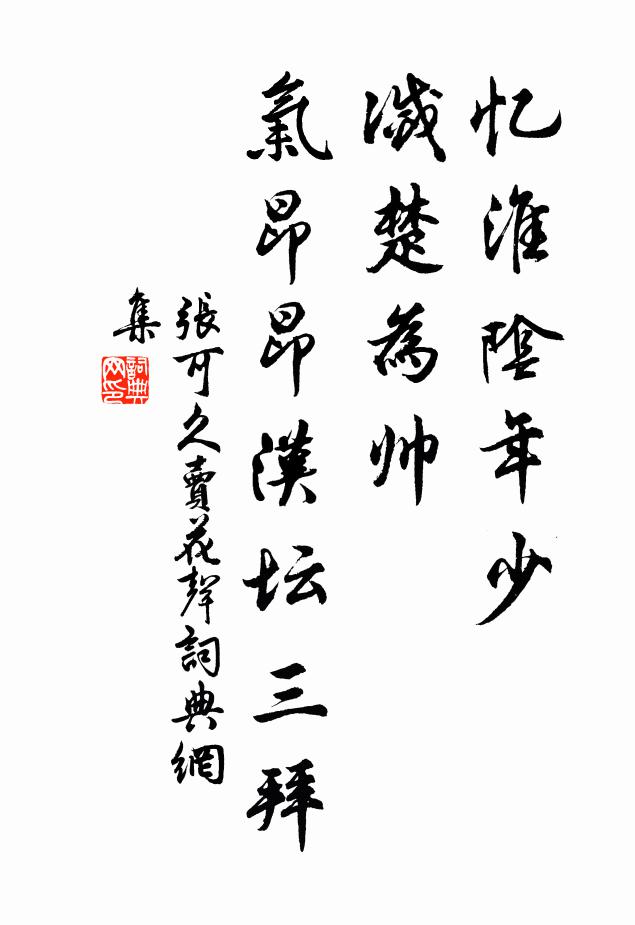 忆淮陰年少
滅楚為帅
氣昂昂漢坛三拜
張可久賣花聲詞典網
集
詞典
网印